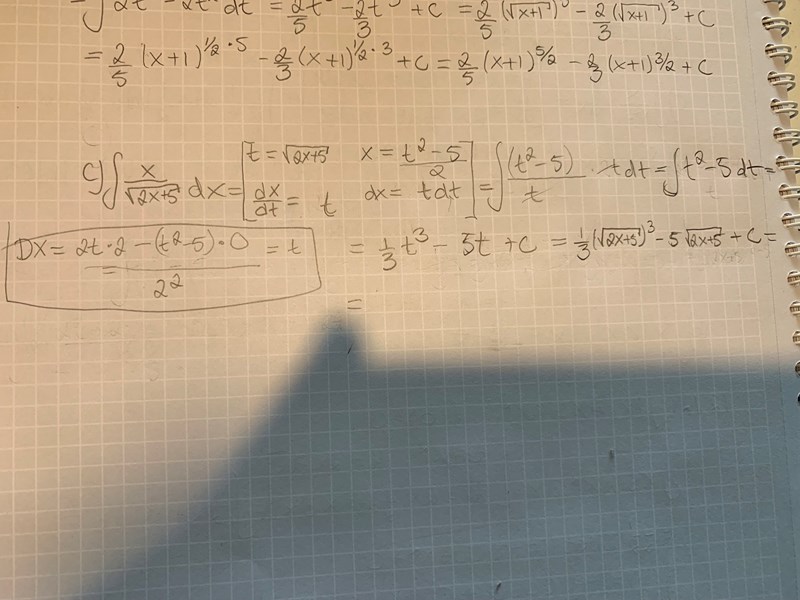 ∫ 2t⁴ - 2t² dt = 2/5 t⁵ - 2/3 t³ + C = 2/5 (√x+1)⁵ - 2/3 (√x+1)³ + C
= 2/5 (x+1)^(1/2 · 5) - 2/3 (x+1)^(1/2 · 3) + C = 2/5 (x+1)^(5/2) - 2/3 (x+1)^(3/2) + C
c) ∫ x/√2x+5 dx = [t = √2x+5 x = (t² - 5)/2 dx/dt = t dx = t dt] = ∫ (t² - 5)/t · t dt = ∫ t² - 5 dt =
DX = (2t · 2 - (t² - 5) · 0)/2² = t
= 1/3 t³ - 5t + C = 1/3 (√2x+5)³ - 5 √2x+5 + C =
=